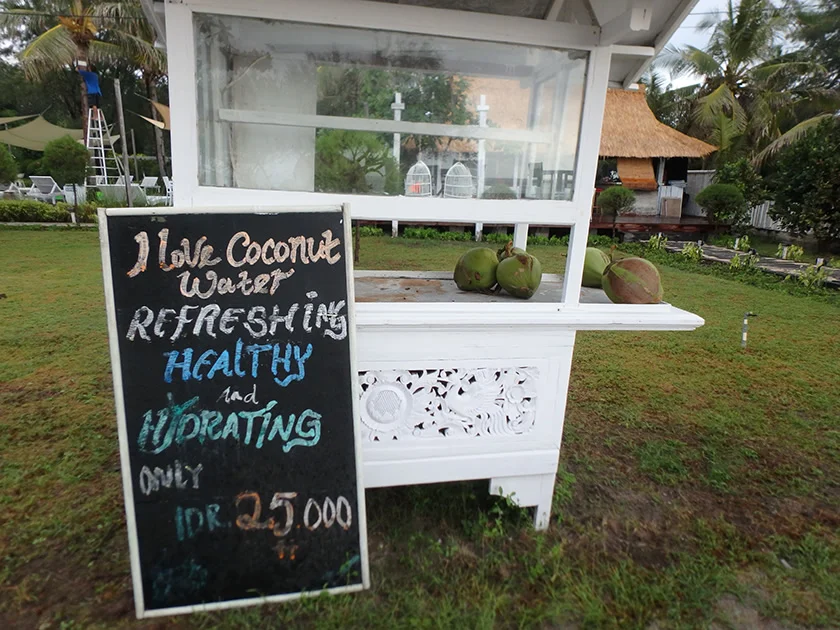 I Love Coconut
Water
REFRESHING
HEALTHY
And
HYDRATING
ONLY
IDR. 25.000